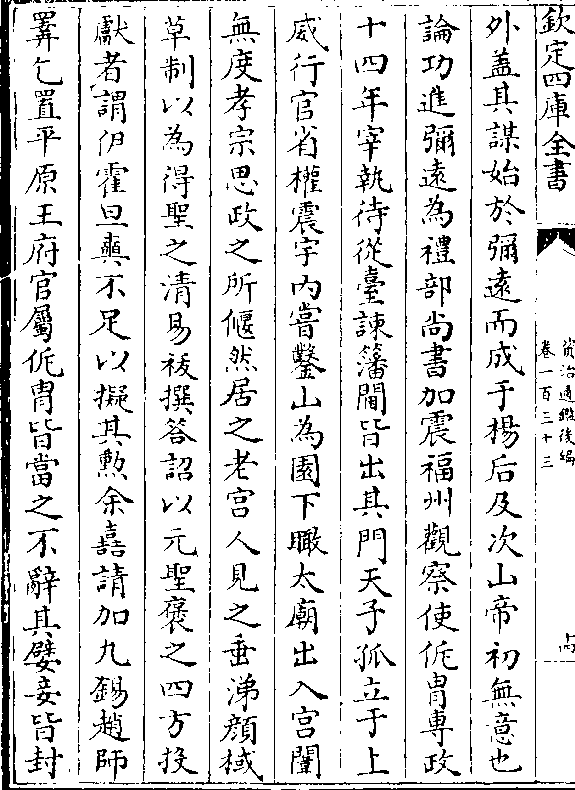 欽定四庫全書
資治通鑑後編
卷一百三十三
外葢其謀始於彌遠而成于楊后及次山帝初無意也
論功進彌遠為禮部尚書加震福州觀察使侂冑專政
十四年宰執待從臺諫籓閫皆出其門天子孤立于上
威行宫省權震宇内嘗鑿山為園下瞰太廟出入宫闈
無度孝宗思政之所偃然居之老宫人見之垂涕顔棫
草制以為得聖之清易袚撰答詔以元聖褒之四方投
獻者謂伊霍旦奭不足以擬其勲余嘉請加九錫趙師
𢍰乞置平原王府官屬侂冑皆當之不辭其嬖妾皆封